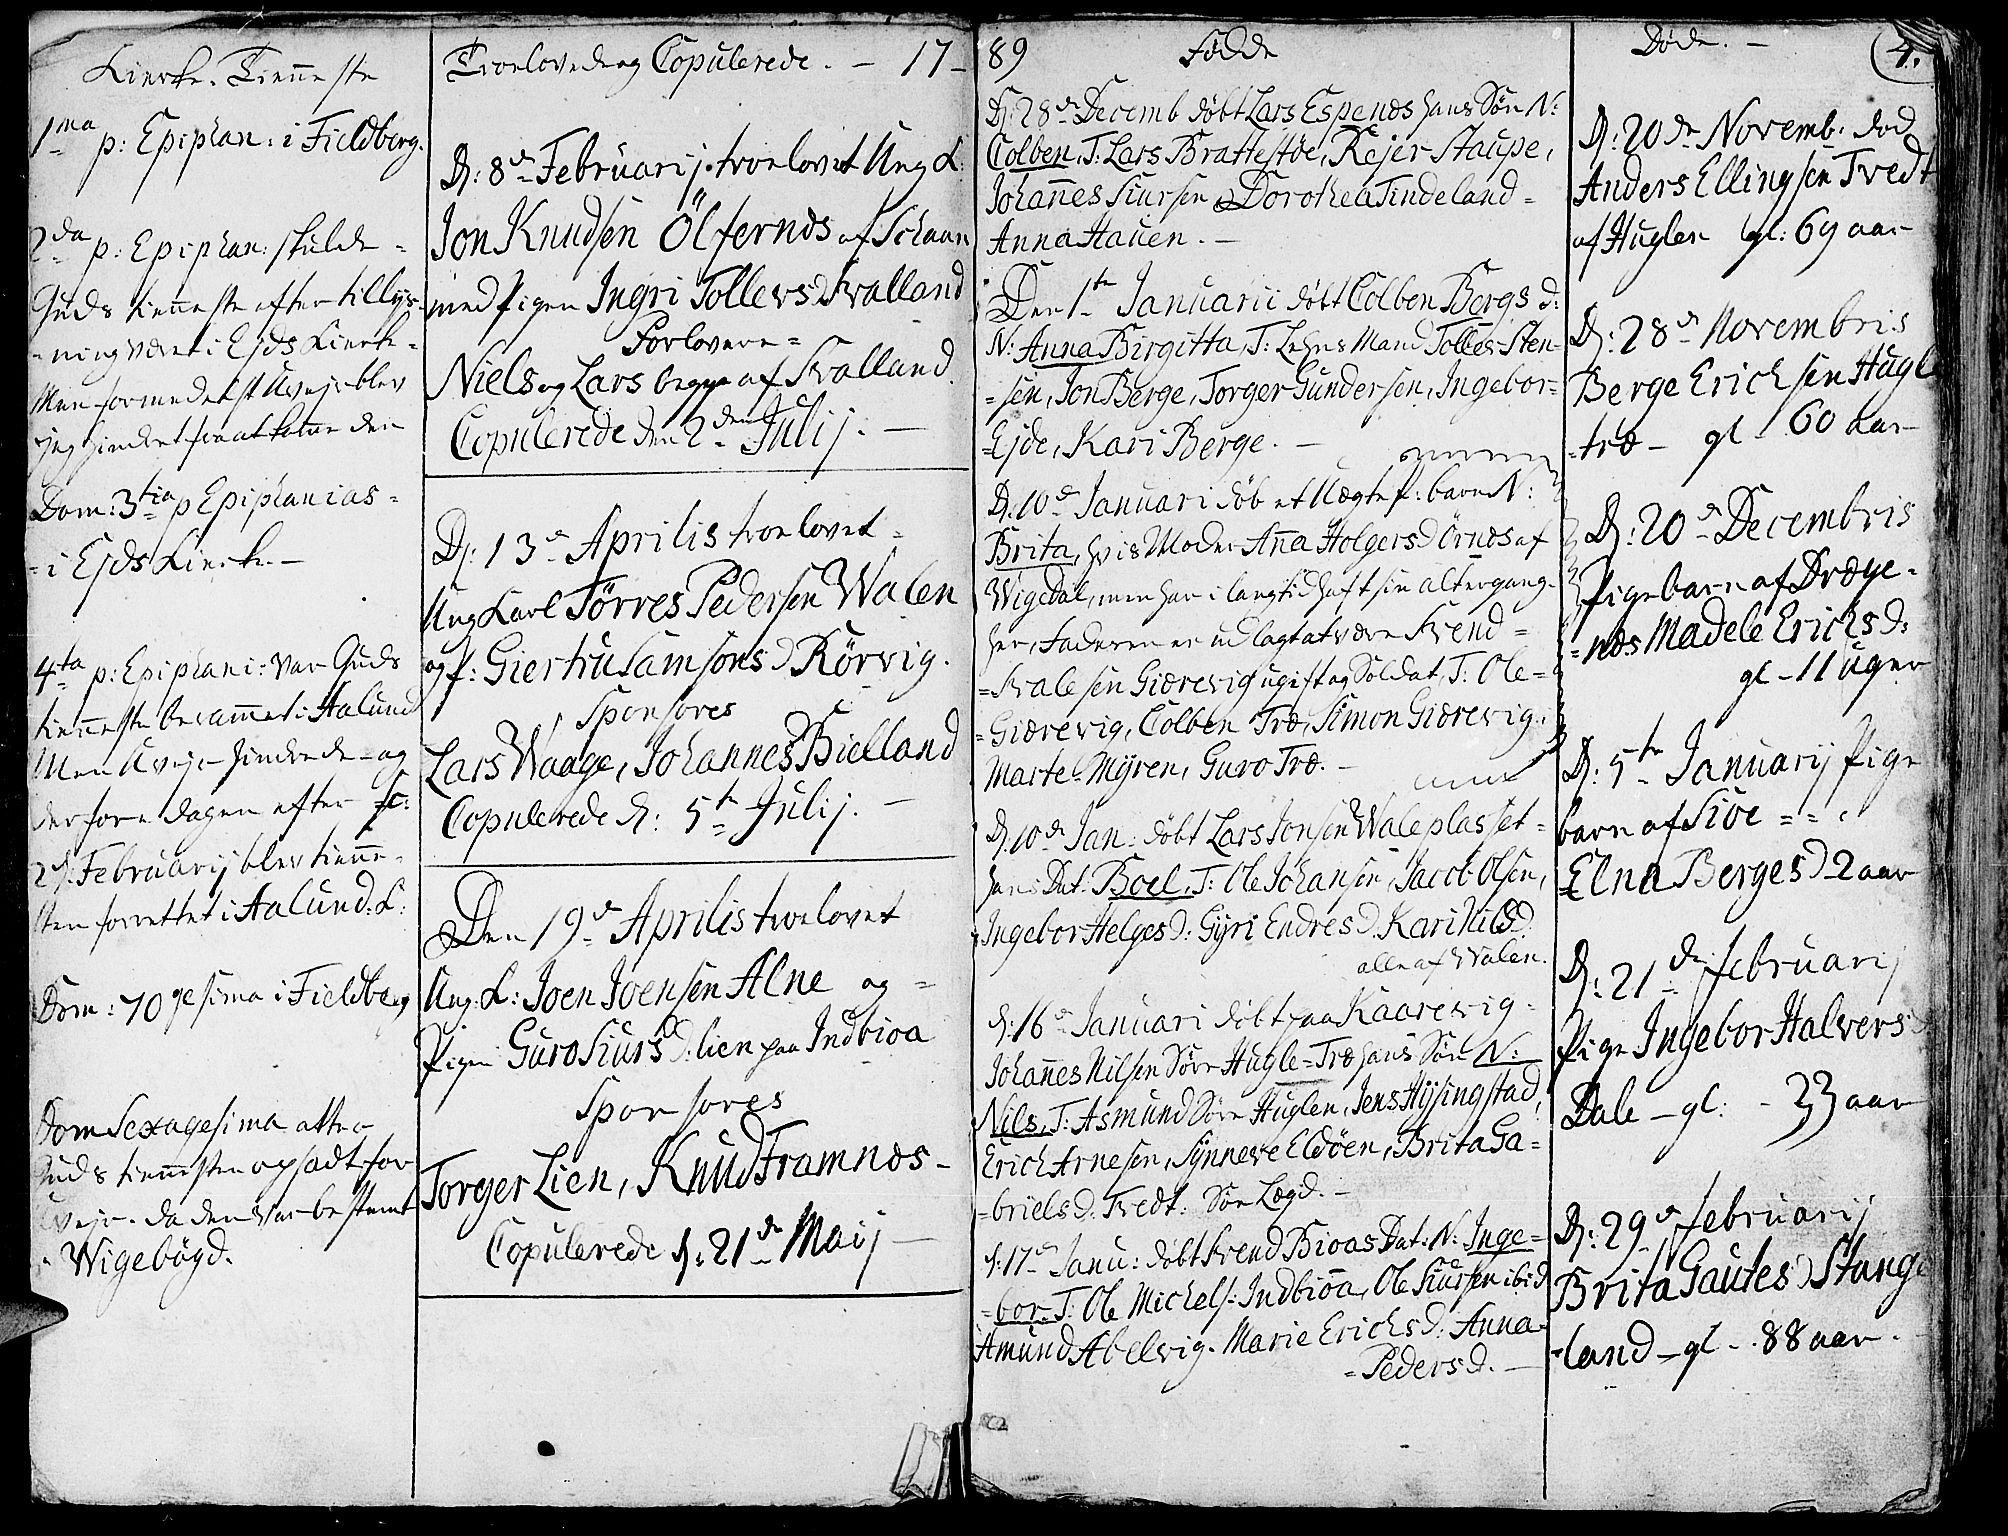 Kircke-Tienneste
1ma p: Epiphan: i Fieldberg.
2da p: Epiphan: skulde
Guds tienneste efter tillys-
ning været i Ejds Kircke-
Men formedelst Uvejr blev
jeg hindret fra at komme der
Dom: 3tia p Epiphanias
i Ejds Kircke-
4ta p: Epiphani: var Guds
tienneste berammet i Aalund
Men Uvejr hindrede og
derfore dagen efter sc:
2 d: Februarij blev tienne-
sten forrettet i Aalund: K:
Dom: 70gesima i Fieldberg
Dom Sexagesima atter
Guds tiennesten opsadt for
Uvejr. da den var bestemt
Wigebögd.
Troelovede og Copulerede. - 17-
D: 8de Februarij. troelovet Ung K:
Jon Knudsen Ölfernæs af Schaan
med Pigen Ingri Tollevs D Kvalland
Forlovere=
Niels og Lars begge af Kvalland.
Copulerede den 2den Julij. -
D: 13de Aprilis troelovet-
Ung Karl Törres Pedersen Walen
og P: Giertru Samsons D Rörvig.
Sponsores
Lars Waage, Johannes Bielland
Copulerede d: 5te Julij. -
Den 19de Aprilis troelovet
Ung: K: Joen Joensen Alne og=
Pigen Guro Siurs D: lien paa Indbioa
Sponsores
Torger Lien, Knud Framnæs-
Copulerede d: 21de Maij -
89 Födde
D: 28de Decemb döbt Lars Espenæs hans Sön N:
Colben, T: Lars Brattestöe, Rejer Staupe,
Johannes Siursen Dorothea Tindeland-
Anna Hauen. -
Den 1te Januarii döbt Colben Bergs d:
N: Anna Birgitta, T: Lehnsmand Tolles Sten-
sen, Jon Berge, Torger Gundersen, Ingebor=
=Ejde, Kari Berge. -
D: 10de Januari döb et Uægte P: barn N:
Brita, hvis Moder Anna Holgers D Örnæs af
Wigedal, men har i lang tid haft sin altergang-
her, Faderen er udlagt at være Svend=
=Svalesen Giærevig ugift og Soldat, T: Ole=
=Giærevig, Colben Træ, Simon Giærevig,
Marte Myren, Guro Træ. -
D: 10de Jan: döbt Lars Jonsen Waleplasset-
hans Dat: Boel, T: Ole Johansen, Jacob Olsen,
Ingebor Helges d: Gyri Endres d. Kari Nils D:
alle af Walen.
d: 16de Januari döbt paa Kaarevig-
Johannes Nilsen Söre Hugle-Træ hans Sön N:
Nels, T: Asmund Söre Huglen, Jens Hysingstad,
Erich Arnesen, Synneve Eldöen, Brita Ga=
=briels d: Tvedt: Sör Lægd. -
d: 17de Janu: döbt Svend Bioas Dat: N: Inge=
=bor. T: Ole Michels: Indbiöa, Ole Siursen ibid
Amund Abelvig. Marie Erichs d: Anna=
=Peders d. -
Döde. - 4.
D: 20de Novemb: död
Anders Ellingsen Tvedt
af Huglen gl: 69 aar
D: 28de Novembris
Berge Erichsen Hugle
=træ - gl - 60 aar
D: 20de Decembris
Pigebarn af Dræge-
=næs Madele Erichs d:
gl - 11 uger
D: 5te Januarij Pige
barn af Siöe = =
Elna Berges D 2 aar
D: 21de Februarij
Pige Ingebor Halvers d
Dale - gl: - 33 aar
D: 29de Februarij
Brita Gautes D Stange
=land - gl - 88 aar.